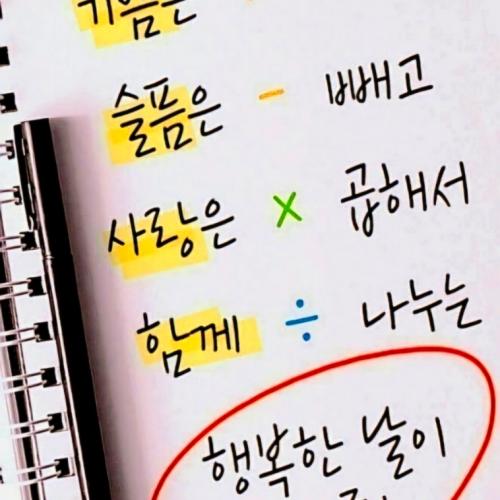 슬픔은 - 빼고
사랑은 × 곱해서
함께 ÷ 나누는
행복한 날이